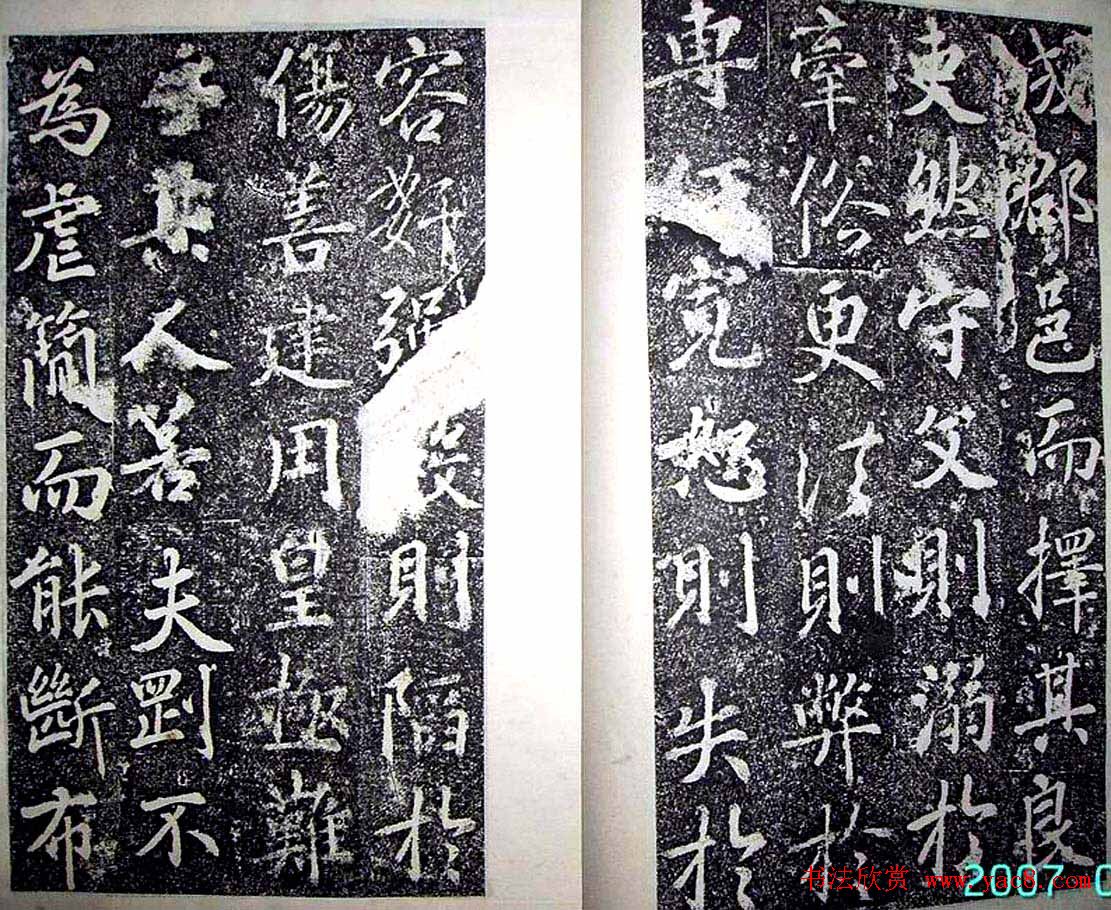 成郡邑而擇其良
吏然守文則溺於
牽俗更法則弊於
專寬恕則失於
容姧強則陷於
傷善建用皇極難
其人若夫剛不
為虐簡而能斷布
书法欣赏 www.yac8.com
2007 0